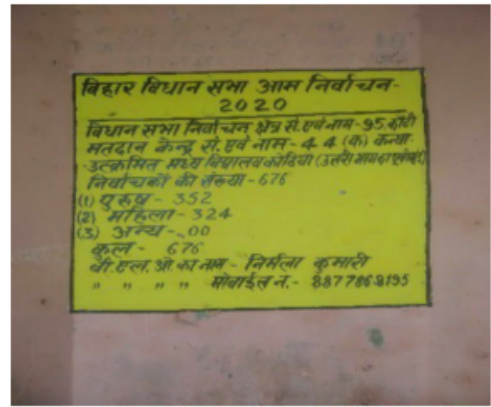 बिहार विधान सभा आम निर्वाचन-
2020
विधान सभा निर्वाचन क्षेत्र सं. एवं नाम - 95
मतदान केन्द्र सं. एवं नाम - 44 (क) कन्या
उत्क्रमित मध्य विद्यालय
निर्वाचकों की संख्या - 676
(1) पुरुष - 352
(2) महिला - 324
(3) अन्य - 00
कुल - 676
बी. एल. ओ का नाम - निर्मला कुमारी
" " " " मोबाईल न. -